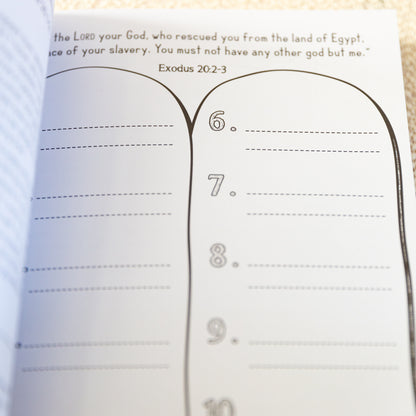 the LORD your God, who rescued you from the land of Egypt,
of your slavery. You must not have any other god but me."
Exodus 20:2-3
6.
7.
8.
9.
10